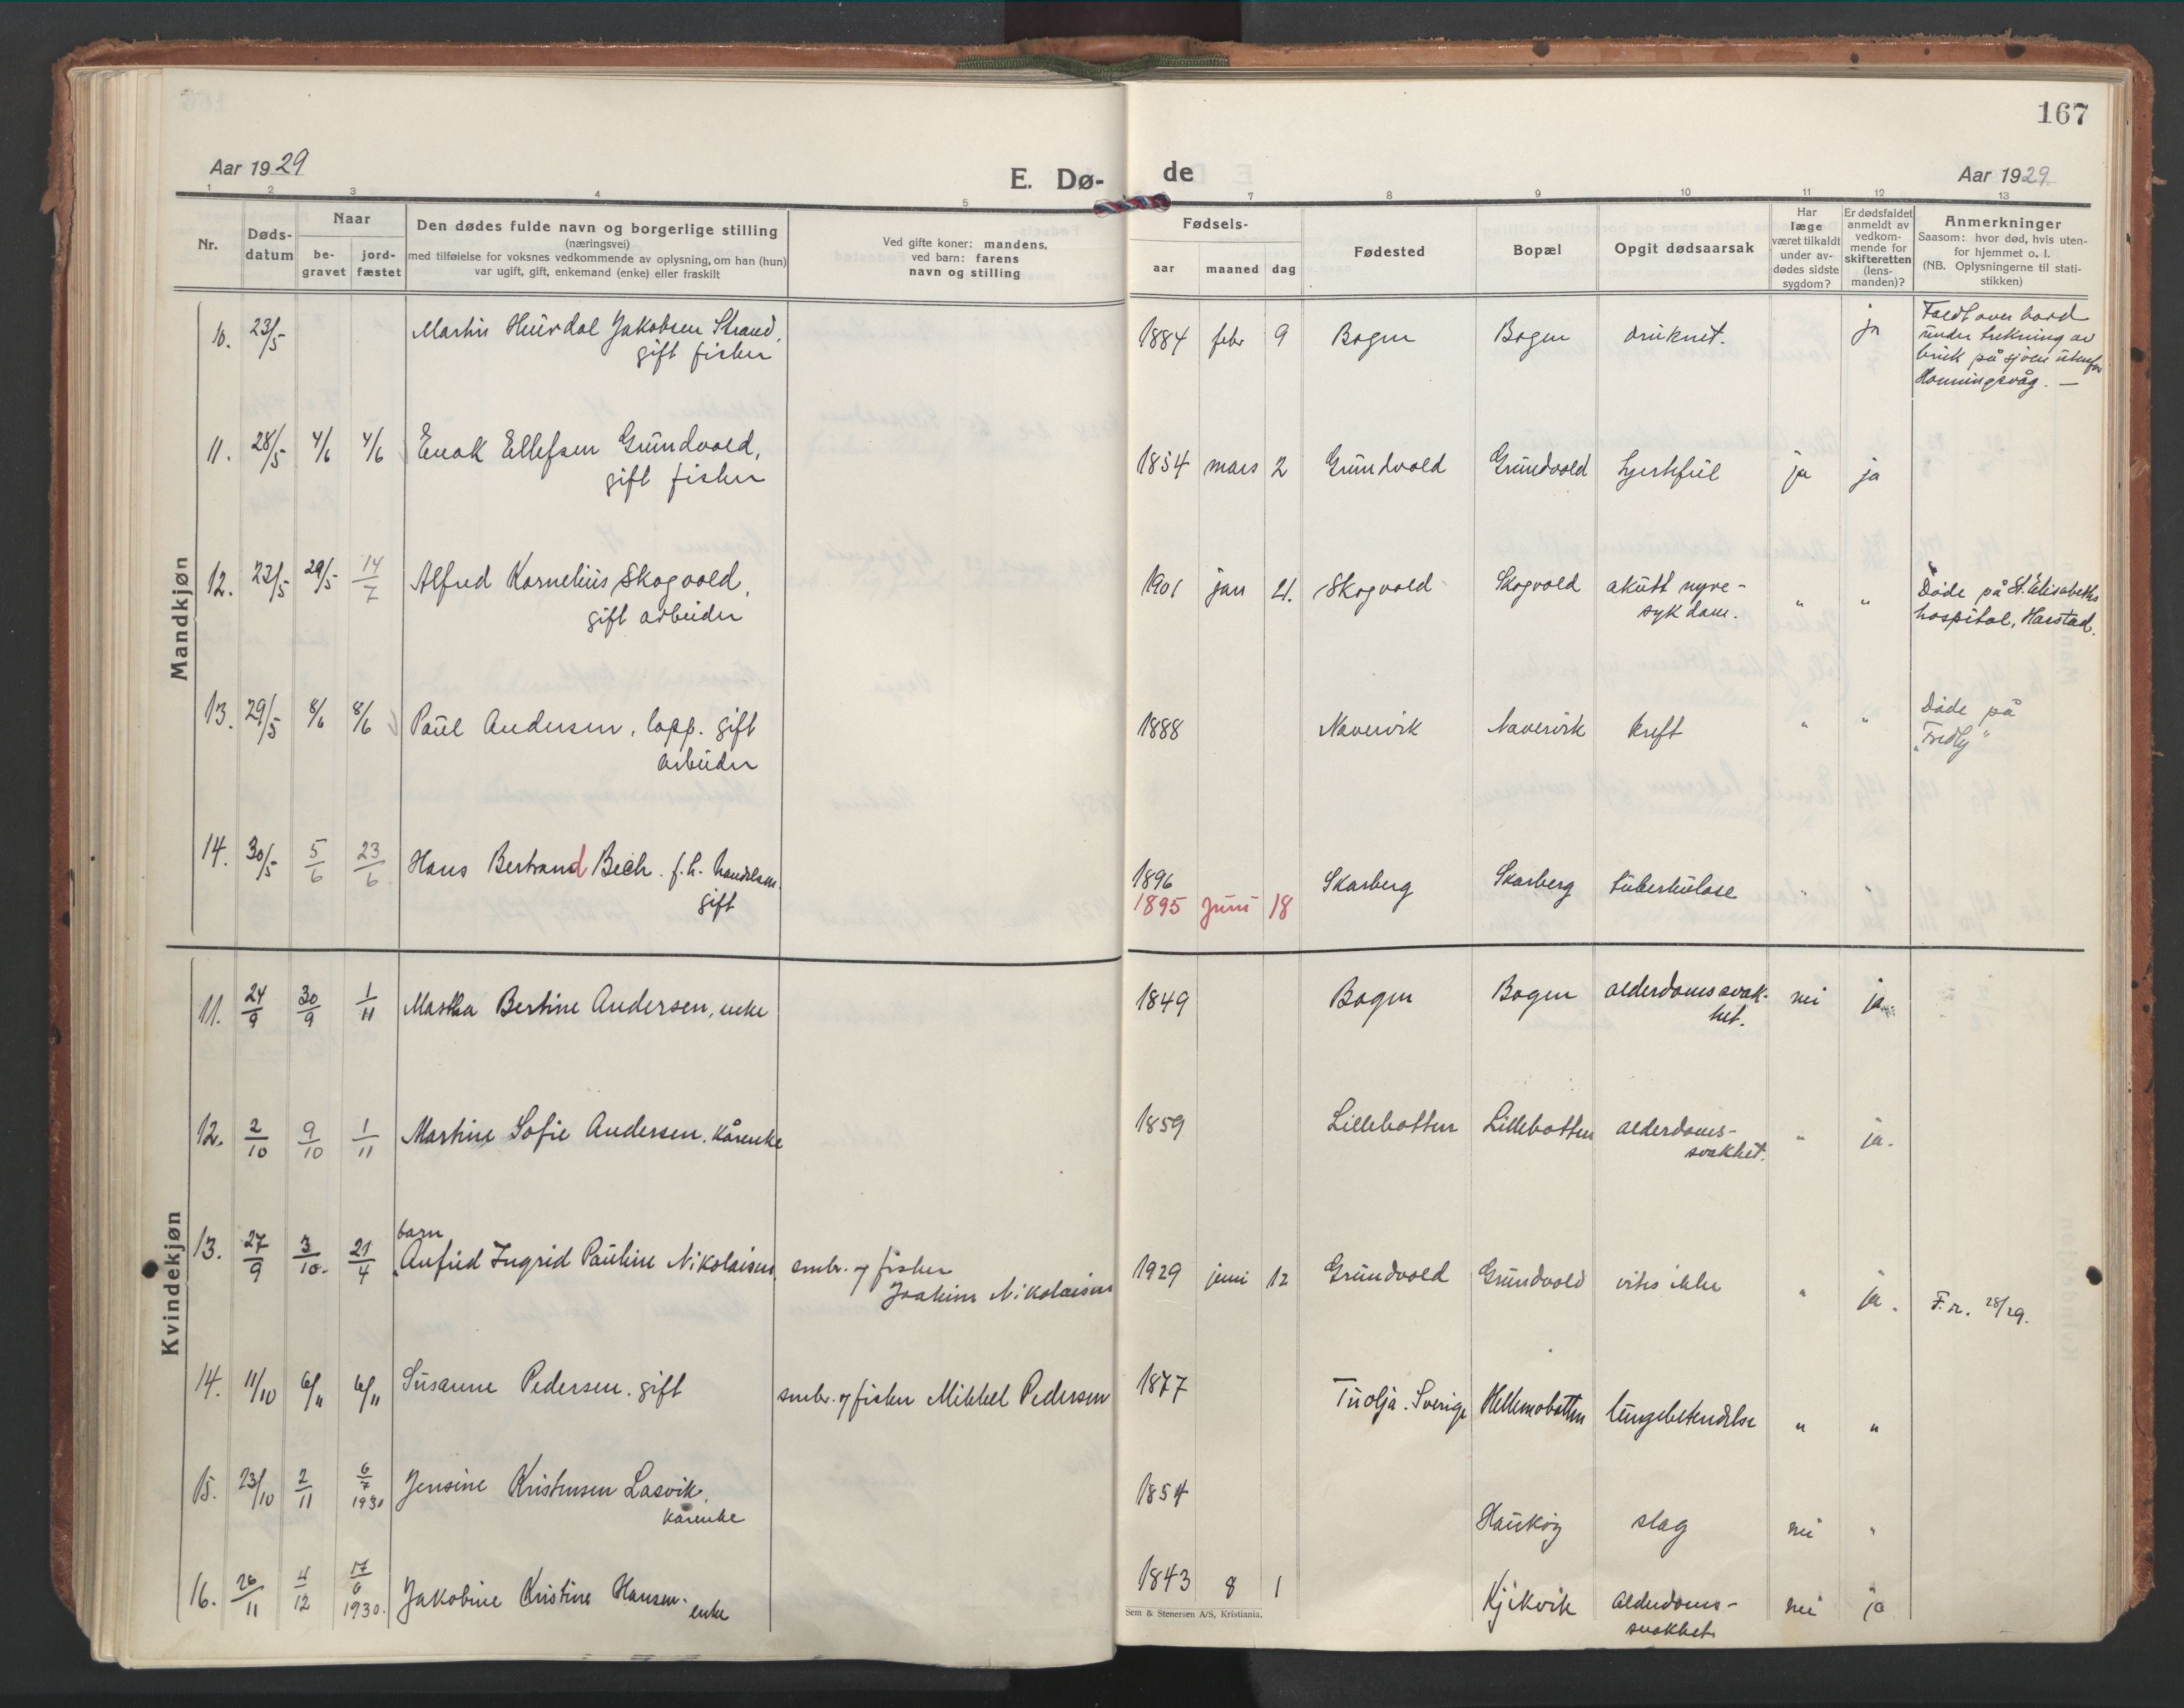 167
Aar 1929
E. Dø-
de
Aar 1929.
1 2 3 4 5 7 8 9 10 11 12 13
Nr.
Døds-
datum
Naar
be-
gravet
jord-
fæstet
Den dødes fulde navn og borgerlige stilling
(næringsvei)
med tilføielse for voksnes vedkommende av oplysning, om han (hun)
var ugift, gift, enkemand (enke) eller fraskilt
Ved gifte koner: mandens,
ved barn: farens
navn og stilling
Fødsels-
aar maaned dag
Fødested
Bopæl
Opgit dødsaarsak
Har
læge
været tilkaldt
under av-
dødes sidste
sygdom?
Er dødsfaldet
anmeldt av
vedkom-
mende for
skifteretten
(lens-
manden)?
Anmerkninger
Saasom: hvor død, hvis uten-
for hjemmet o. l.
(NB. Oplysningerne til stati-
stikken)
Mandkjøn
10. 23/5 Martin Hurdal Jakobsen Strand,
gift fisker
1884 febr 9 Bogen Bogen druknet. ja
Faldt over bord
under trekning av
bruk på sjøen utenfor
Honningsvåg. —
11. 28/5 4/6 4/6 Enok Ellefsen Grundvold,
gift fisker
1854 mars 2 Grundvold Grundvold hjertefeil ja ja
12. 23/5 29/5 14/7 Alfred Kornelius Skogvold,
gift arbeider
1901 jan 21. Skogvold Skogvold akutt nyre-
sykdom. " "
Døde på St. Elisabeths
hospital, Harstad.
13. 29/5 8/6 8/6 Paul Andersen, lapp. gift
arbeider
1888 Navervik Navervik kreft " "
Døde på
"Fredly"
14. 30/5 5/6 23/6 Hans Bertrand Bech. f.h. handelsm.
gift
1896
1895 Juni 18 Skarberg Skarberg tuberkulose " "
Kvindekjøn
11. 24/9 30/9 1/11 Martha Bertine Andersen, enke
1849 Bogen Bogen alderdomssvak-
het. nei ja
12. 2/10 9/10 1/11 Martine Sofie Andersen. kårenke
1859 Lillebotten Lillebotten alderdoms-
svakhet. " ja.
barn
13. 27/9 3/10. 21/4 Anfrid Ingrid Pauline Nikolaisen smbr. og fisker
Joakim Nikolaisen
1929 juni 12 Grundvold Grundvold vites ikke " ja. F.r. 28/29.
14. 11/10 6/11 6/11 Susanne Pedersen. gift smbr. og fisker Mikkel Pedersen
1877 Tuolja. Sverige Hellemobotten lungebetendelse " "
15. 23/10 2/11 6/7 1930 Jensine Kristensen Lasvik,
kårenke
1854 Haukøy slag nei "
16. 26/11 4/12 17/6 1930. Jakobine Kristine Hansen. enke
1843 8 1 Kjikvik Alderdoms-
svakhet nei ja
Sem & Stenersen A/S, Kristiania.